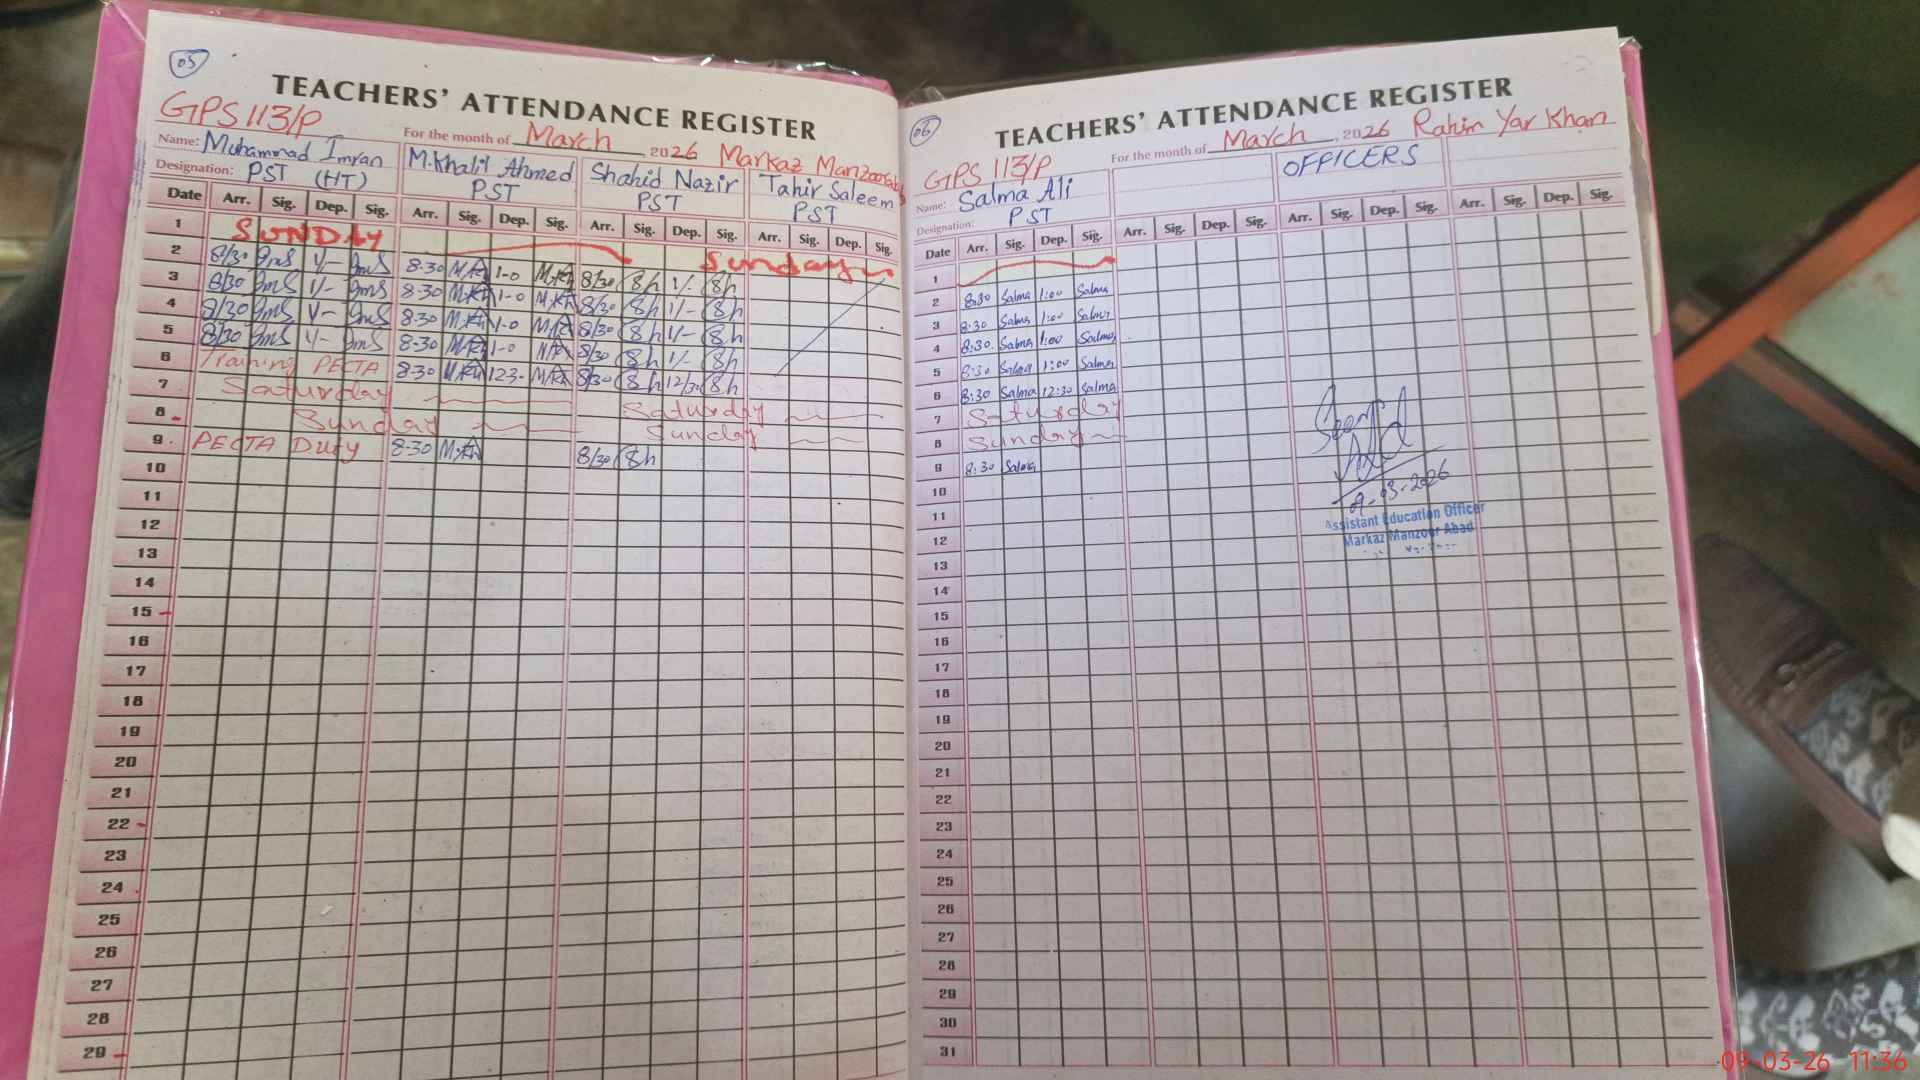 05
TEACHERS' ATTENDANCE REGISTER
GPS 113/P
For the month of March 2026 Markaz
Name: Muhammad Imran M.Khalil Ahmed Shahid Nazir Tahir Saleem
Designation: PST (HT) PST PST PST
Date Arr. Sig. Dep. Sig. Arr. Sig. Dep. Sig. Arr. Sig. Dep. Sig. Arr. Sig. Dep. Sig.
1 SUNDAY Sunday
2 8/30 1/- 8-30 1-0 8/30 1/-
3 8/30 1/- 8-30 1-0 8/30 1/-
4 8/30 1/- 8-30 1-0 8/30 1/-
5 8/30 1/- 8-30 1-0 8/30 1/-
6 Training PECTA 8-30 8/30 12/30
7 Saturday Saturday
8 Sunday Sunday
9 PECTA Duty 8-30 8/30
10
11
12
13
14
15
16
17
18
19
20
21
22
23
24
25
26
27
28
29
06
TEACHERS' ATTENDANCE REGISTER
GPS 113/P
For the month of March, 2026 Rahim Yar Khan
Name: Salma Ali OFFICERS
Designation: PST
Date Arr. Sig. Dep. Sig. Arr. Sig. Dep. Sig. Arr. Sig. Dep. Sig. Arr. Sig. Dep. Sig.
1
2 8:30 Salma 1:00 Salma
3 8:30 Salma 1:00 Salma
4 8:30 Salma 1:00 Salma
5 8:30 Salma 1:00 Salma
6 8:30 Salma 12:30 Salma
7 Saturday
8 Sunday
9 8:30 Salma
10
11
12
13
14
15
16
17
18
19
20
21
22
23
24
25
26
27
28
29
30
31
9-03-2026
Assistant Education Officer
Markaz Manzoor Abad
09-03-26 11:36